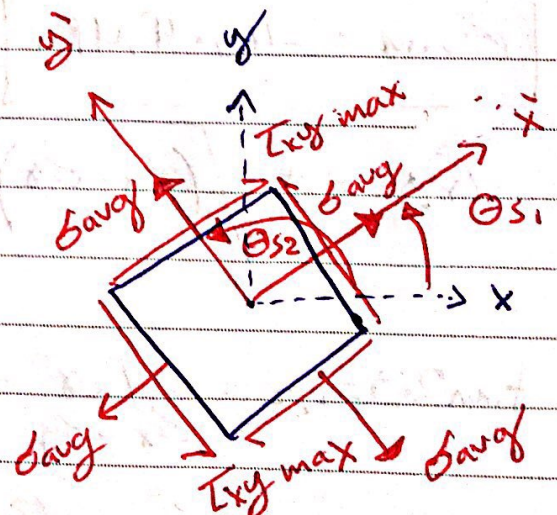 ȳ
y
τxy max
x̄
σavg
σavg
θs1
θs2
x
σavg
τxy max
σavg